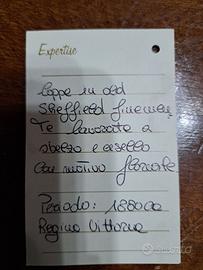 Expertise
Coppe in old
Sheffield finemen
Te lavorate a
sbalzo e cesello
con motivo floreale
Periodo: 1880 ca
Regina Vittoria
subito